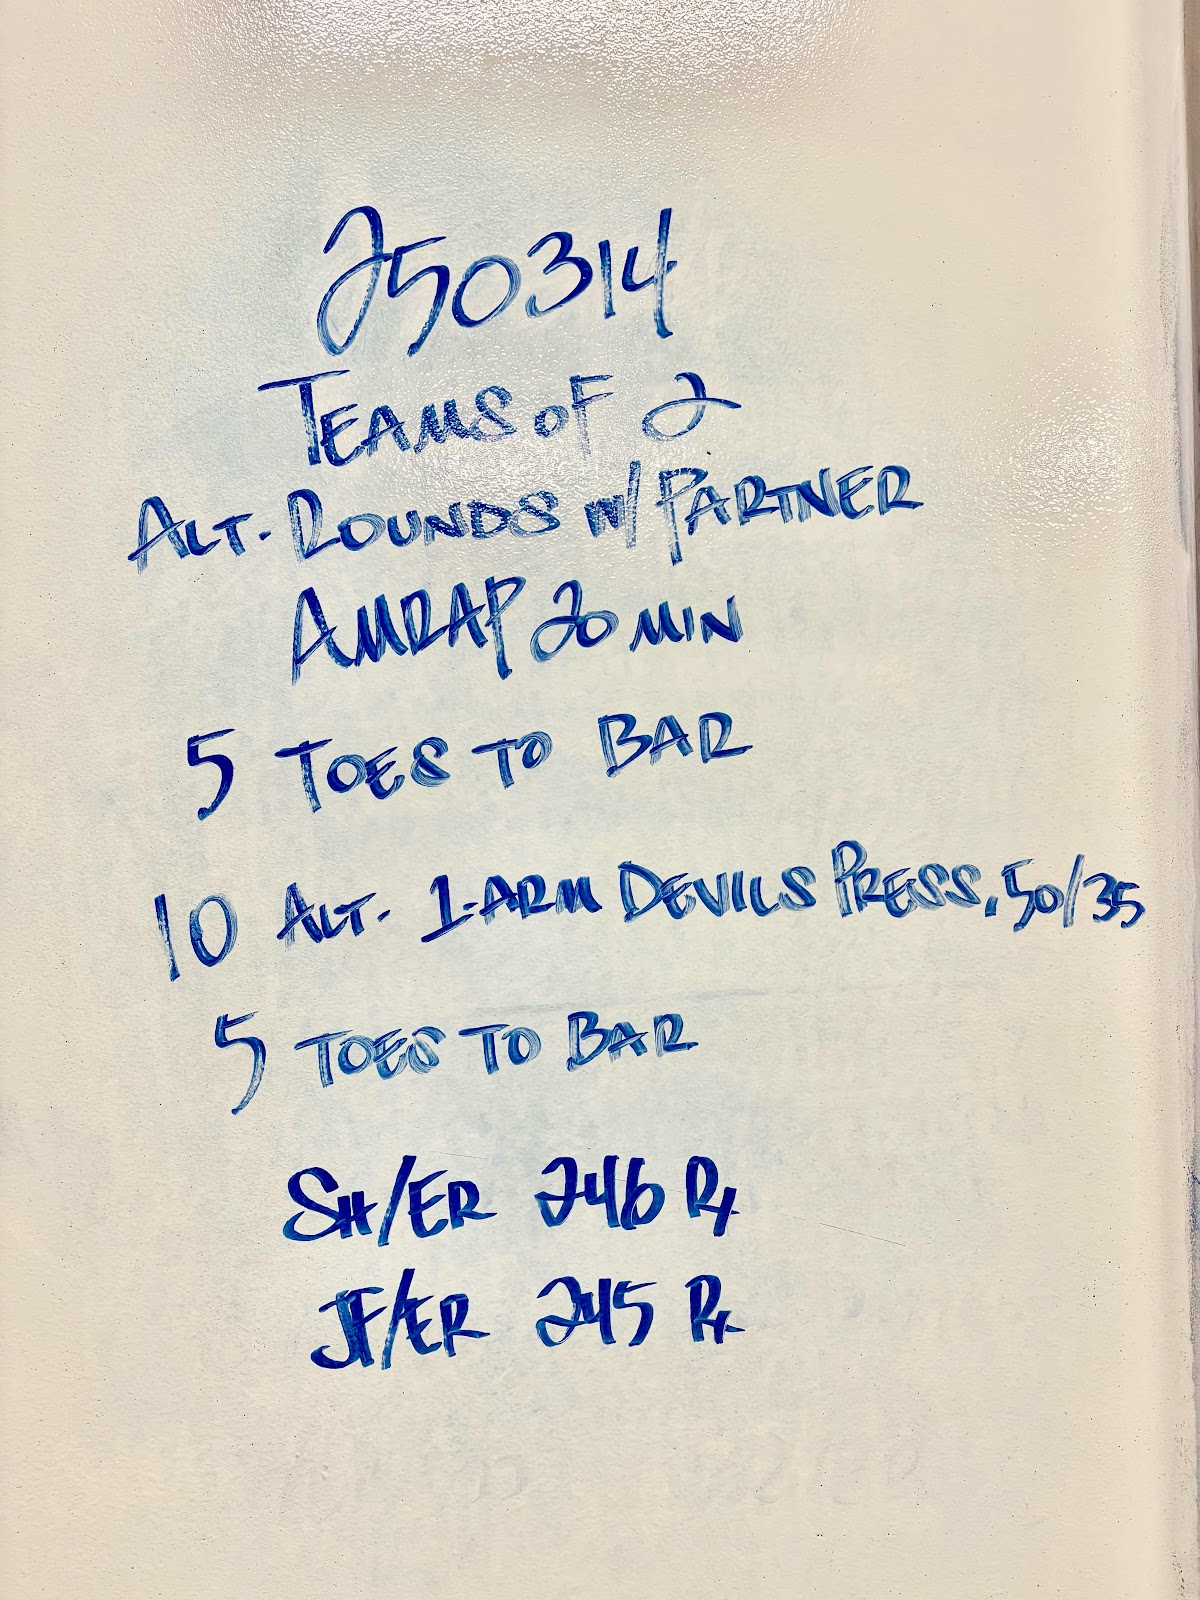 250314
TEAMS OF 2
ALT. ROUNDS W/ PARTNER
AMRAP 20 MIN
5 TOES TO BAR
10 ALT. 1-ARM DEVILS PRESS, 50/35
5 TOES TO BAR
SH/ER 246 Rx
JF/ER 245 Rx